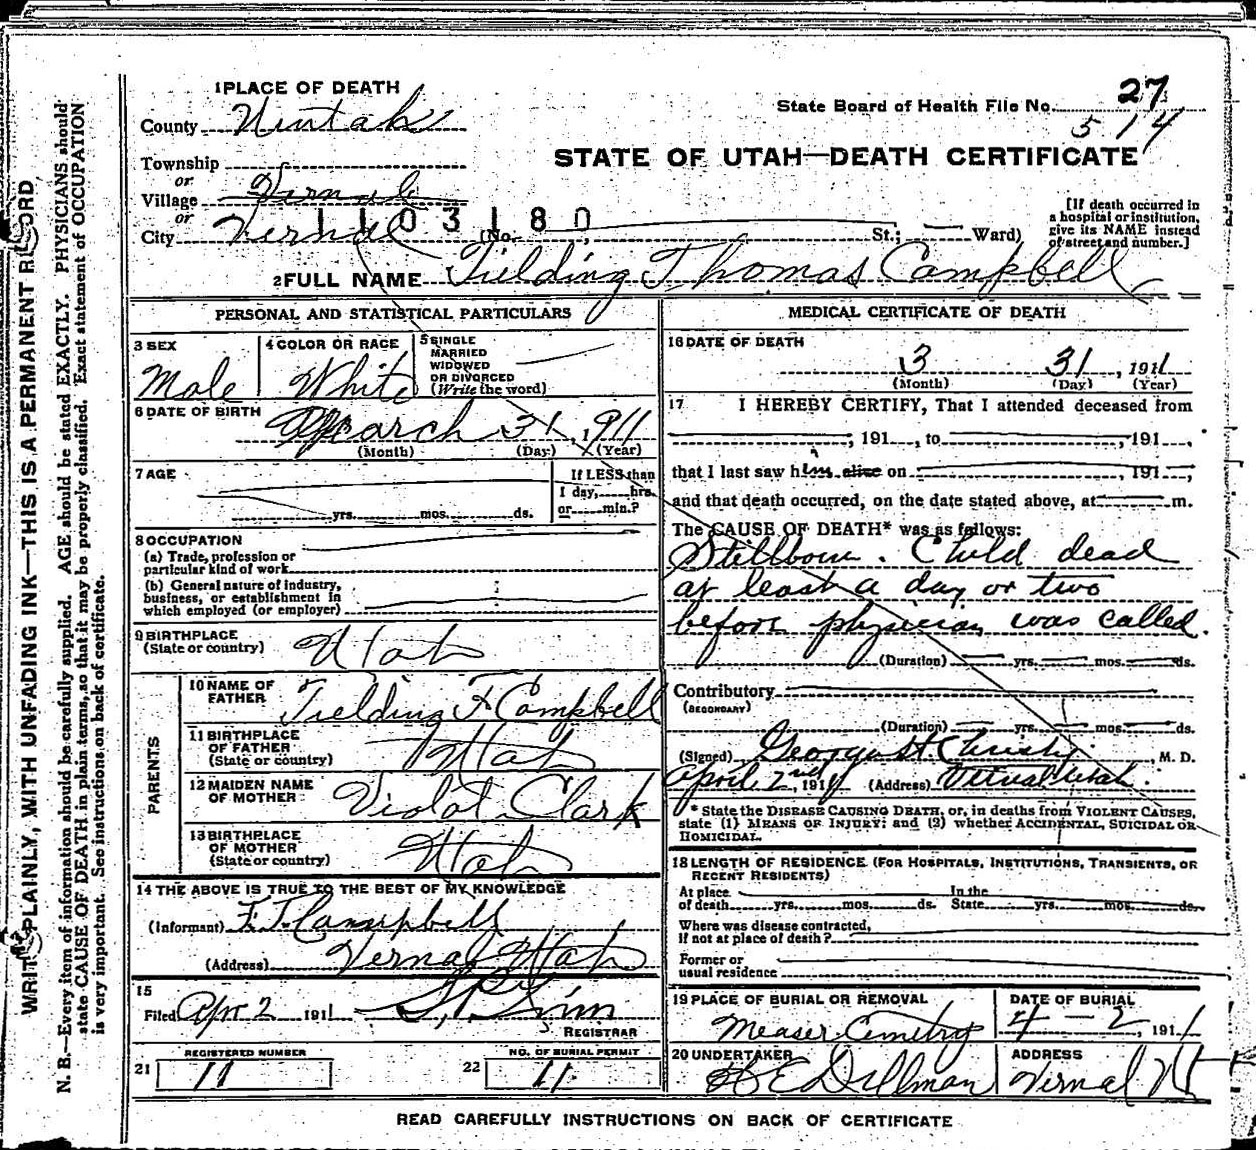 WRITE PLAINLY, WITH UNFADING INK—THIS IS A PERMANENT RECORD
N. B.—Every item of information should be carefully supplied. AGE should be stated EXACTLY. PHYSICIANS should
state CAUSE OF DEATH in plain terms, so that it may be properly classified. Exact statement of OCCUPATION
is very important. See instructions on back of certificate.
1 PLACE OF DEATH
County Uintah
Township
or
Village Vernal
or
City Vernal (No. St.; Ward)
1103180
State Board of Health File No. 27
514
STATE OF UTAH—DEATH CERTIFICATE
[If death occurred in
a hospital or institution,
give its NAME instead
of street and number.]
2 FULL NAME Fielding Thomas Campbell
PERSONAL AND STATISTICAL PARTICULARS
3 SEX
Male
4 COLOR OR RACE
White
5 SINGLE
MARRIED
WIDOWED
OR DIVORCED
(Write the word)
6 DATE OF BIRTH
March 31, 1911
(Month) (Day) (Year)
7 AGE
yrs. mos. ds.
If LESS than
1 day, hrs.
or min.?
8 OCCUPATION
(a) Trade, profession or
particular kind of work
(b) General nature of industry,
business, or establishment in
which employed (or employer)
9 BIRTHPLACE
(State or country) Utah
PARENTS
10 NAME OF
FATHER Fielding F Campbell
11 BIRTHPLACE
OF FATHER
(State or country) Utah
12 MAIDEN NAME
OF MOTHER Violot Clark
13 BIRTHPLACE
OF MOTHER
(State or country) Utah
14 THE ABOVE IS TRUE TO THE BEST OF MY KNOWLEDGE
(Informant) F. T. Campbell
(Address) Vernal Utah
15
Filed Apr 2 1911
REGISTRAR
21 REGISTERED NUMBER
11
22 NO. OF BURIAL PERMIT
11.
MEDICAL CERTIFICATE OF DEATH
16 DATE OF DEATH
3 31, 1911
(Month) (Day) (Year)
17 I HEREBY CERTIFY, That I attended deceased from
, 191 , to , 191 ,
that I last saw him alive on , 191 ,
and that death occurred, on the date stated above, at m.
The CAUSE OF DEATH* was as follows:
Stillborn. Child dead
at least a day or two
before physician was called.
(Duration) yrs. mos. ds.
Contributory
(SECONDARY)
(Duration) yrs. mos. ds.
(Signed) George H. Christie, M. D.
April 2nd, 1911 (Address) Vernal Utah.
* State the DISEASE CAUSING DEATH, or, in deaths from VIOLENT CAUSES,
state (1) MEANS OF INJURY; and (2) whether ACCIDENTAL, SUICIDAL OR
HOMICIDAL.
18 LENGTH OF RESIDENCE (FOR HOSPITALS, INSTITUTIONS, TRANSIENTS, OR
RECENT RESIDENTS)
At place In the
of death yrs. mos. ds. State yrs. mos. ds.
Where was disease contracted,
if not at place of death?
Former or
usual residence
19 PLACE OF BURIAL OR REMOVAL
Measer Cemetry
DATE OF BURIAL
4-2, 1911
20 UNDERTAKER
H E Dillman
ADDRESS
Vernal Ut
READ CAREFULLY INSTRUCTIONS ON BACK OF CERTIFICATE